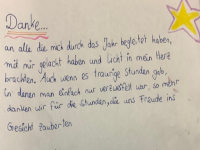 Danke...
an alle die mich durch das Jahr begleitet haben,
mit mir gelacht haben und Licht in mein Herz
brachten. Auch wenn es traurige Stunden gab,
in denen man einfach nur verzweifelt war, so mehr
danken wir für die Stunden, die uns Freude ins
Gesicht zauberten